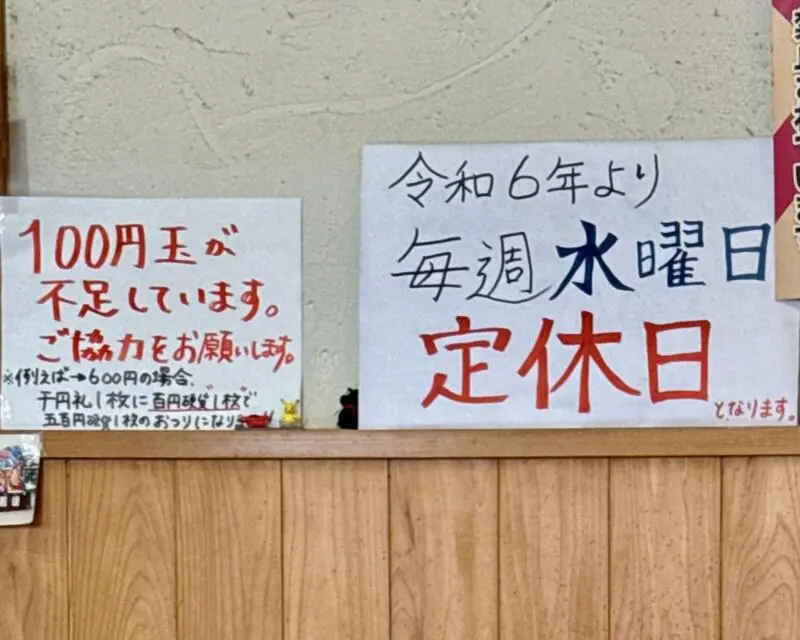 100円玉が
不足しています。
ご協力をお願いします。
※例えば→600円の場合、
千円札1枚に百円硬貨1枚で
五百円硬貨1枚のおつりになります
令和6年より
毎週水曜日
定休日
となります。